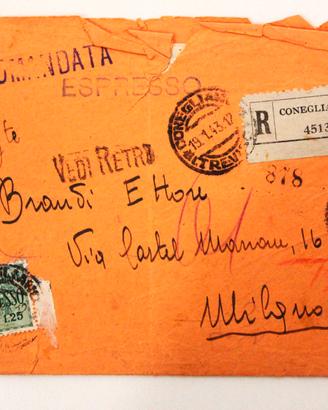 OMANDATA
ESPRESSO
CONEGLIA
19.1.43.12
(TREVI
R
CONEGLIA
4513
VEDI RETRO
878
Brandi Ettore
Via Castel Morrone, 16
Milano
ESSO
1.25